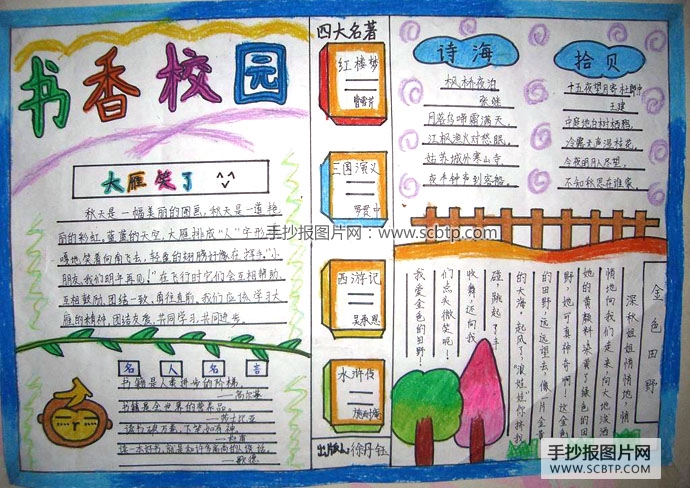 书香校园
大雁笑了
秋天是一幅美丽的图画,秋天是一道艳
丽的彩虹,蓝蓝的天空,大雁排成"人"字形,
嘎地笑着向南飞去,轻盈的翅膀好像在挥手"小
朋友,我们明年再见!"在飞行时它们会互相帮助,
互相鼓励,团结一致,南往直前,我们应该学习大
雁的精神,团结友爱,共同学习,共同进步。
名人名言
书籍是人类进步的阶梯。
——高尔基
书籍是全世界的营养品。
——莎士比亚
读书破万卷,下笔如有神。
——杜甫
读一本好书,就是和许多高尚的人谈话。
——歌德
四大名著
红楼梦
曹雪芹
三国演义
罗贯中
西游记
吴承恩
水浒传
施耐庵
出版人:徐丹钰
诗海
枫桥夜泊
张继
月落乌啼霜满天,
江枫渔火对愁眠。
姑苏城外寒山寺,
夜半钟声到客船。
拾贝
十五夜望月寄杜郎中
王建
中庭地白树栖鸦,
冷露无声湿桂花。
今夜月明人尽望,
不知秋思在谁家。
金色田野
深秋姐姐悄悄地,悄
悄地向我们走来,向大地泼洒
她的黄颜料染黄了绿色的田
野,她可真神奇啊!这金色
的田野,远远望去,像片金黄
的大海,起风了,"浪娃娃"你挤我
碰,跳起了丰
收舞,还向我
们点头微笑呢!
我爱金色的田野!
手抄报图片网:www.scbtp.com
手抄报图片网
WWW.SCBTP.COM